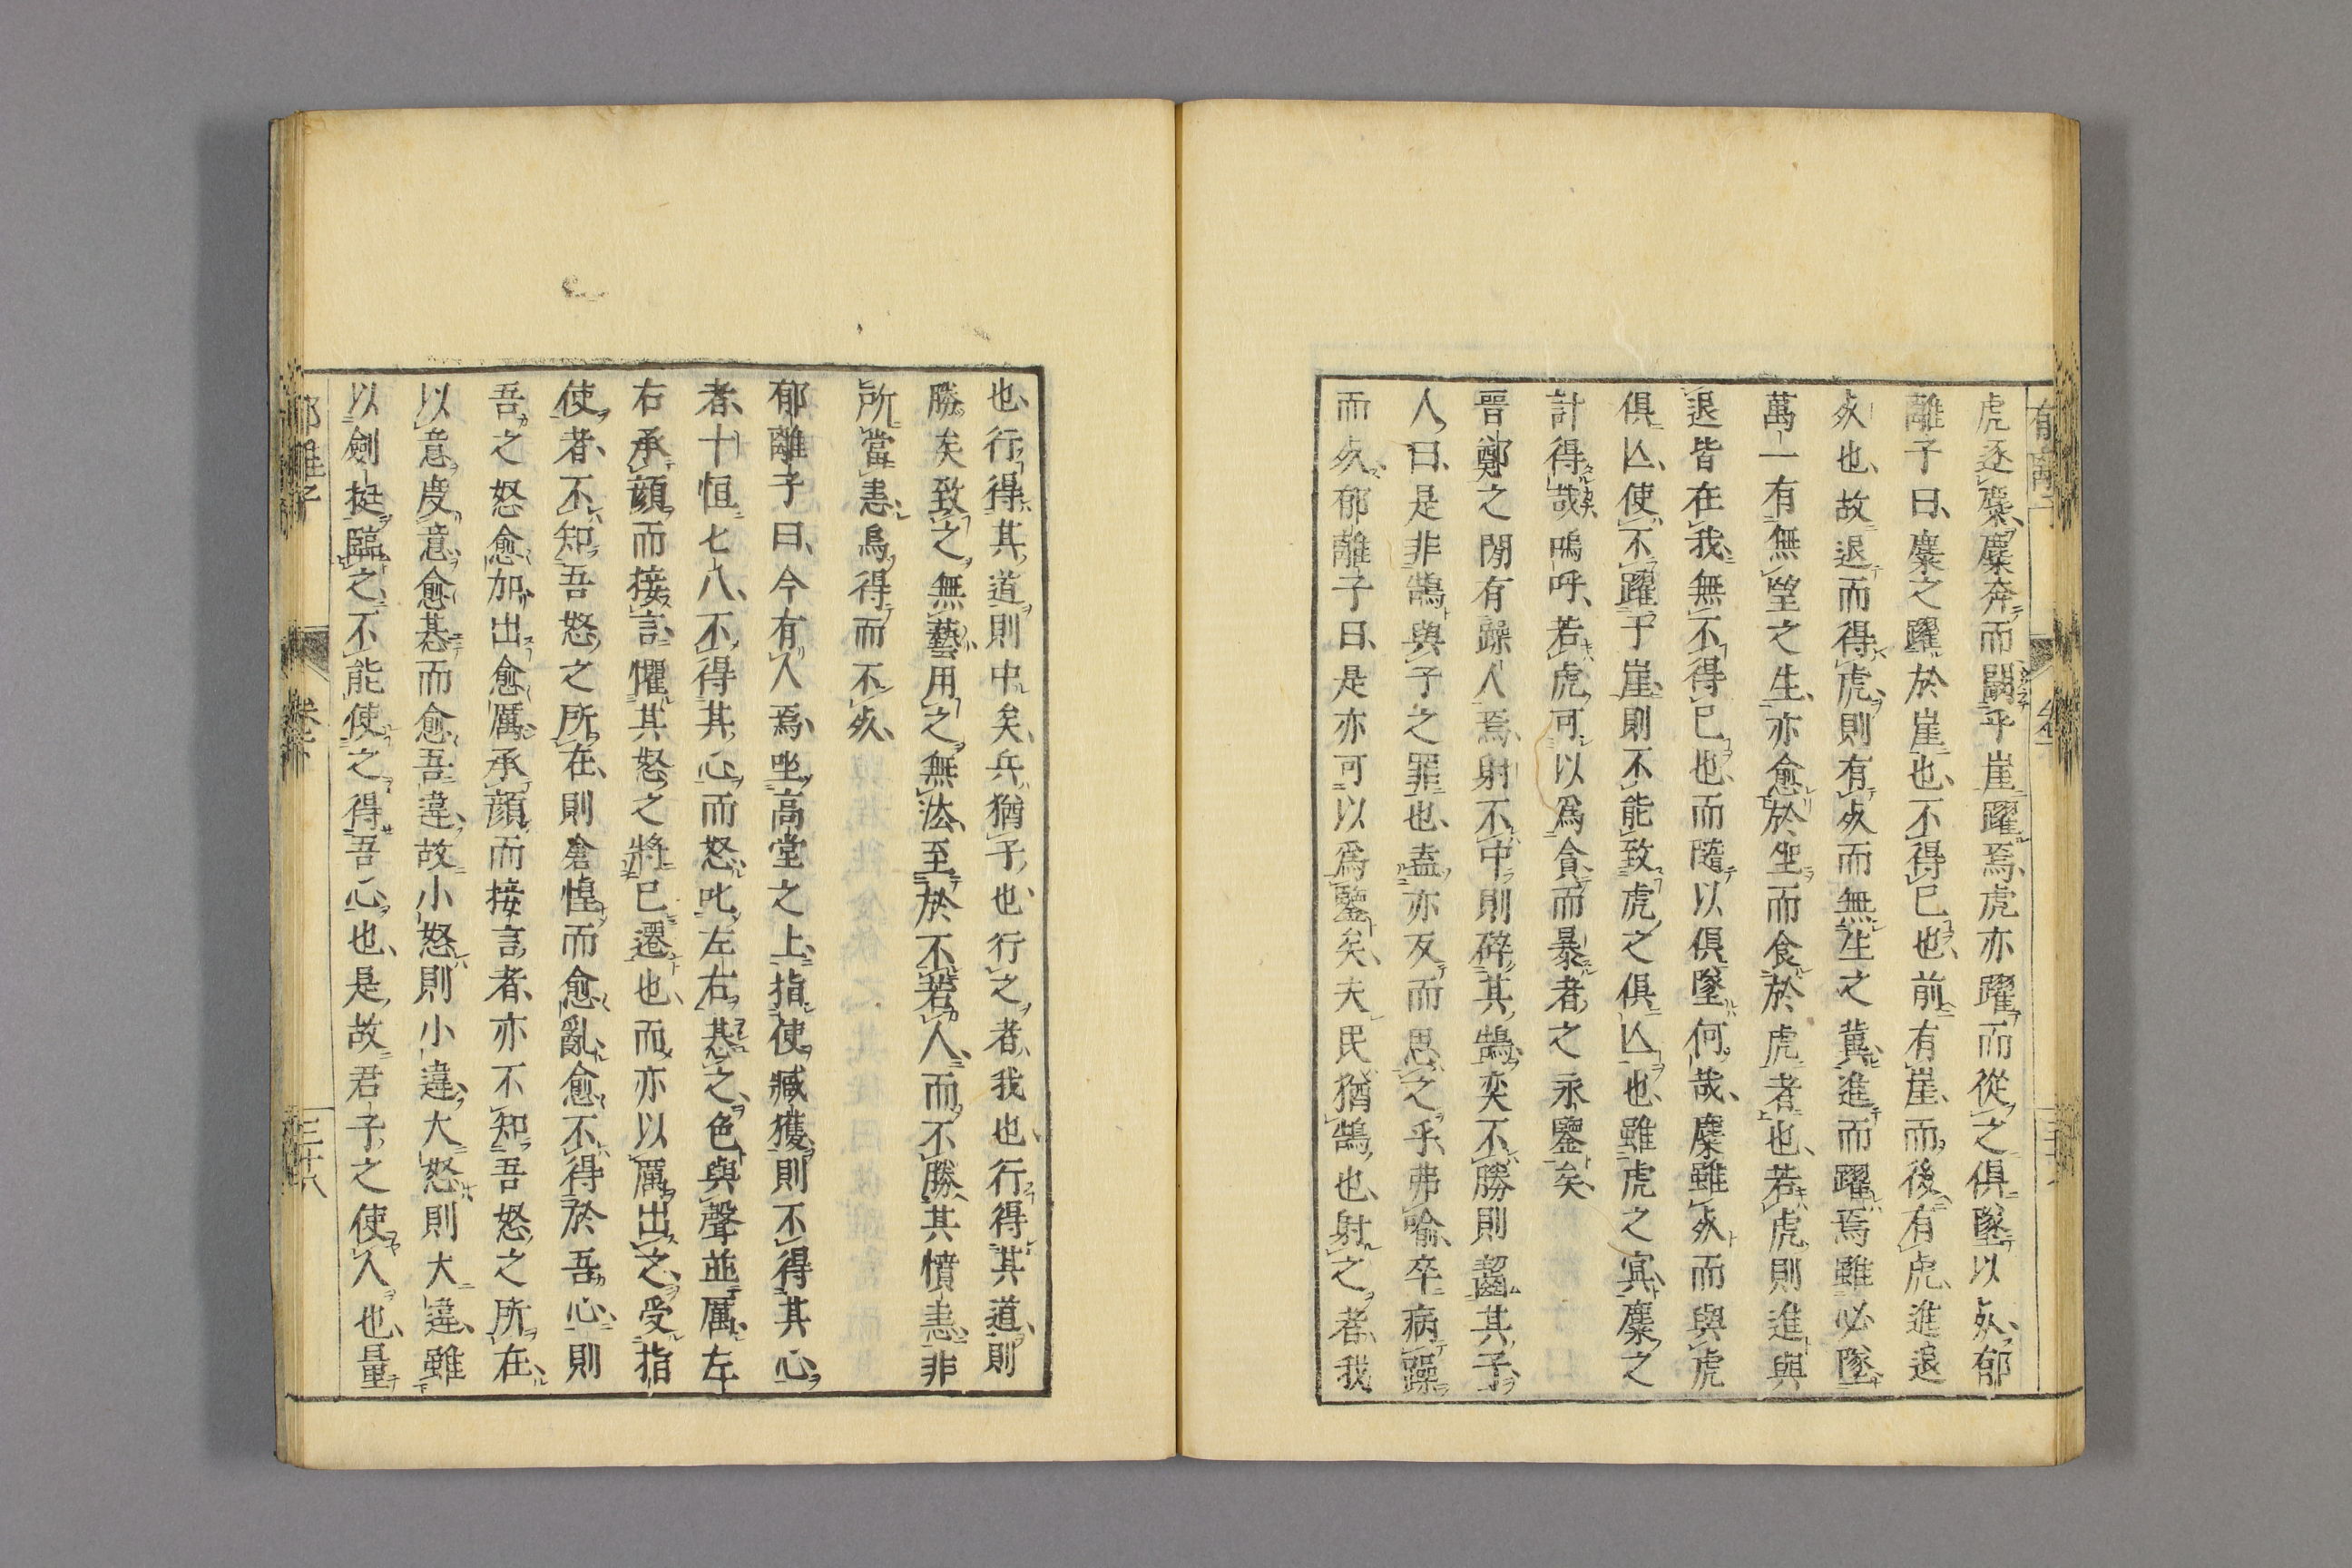 虎逐麋麋奔而闞乎崖躍焉虎亦躍而從之俱墜以死郁
離子曰麋之躍於崖也不得已也前有崖而後有虎進退
死也故退而得虎則有死而無生之冀進而躍焉雖必墜
萬一有無望之生亦愈於坐而食於虎者也若虎則進與
退皆在我無不得已也而隨以俱墜何哉麋雖死而與虎
俱亾使不躍于崖則不能致虎之俱亾也雖虎之冥麋之
計得哉嗚呼若虎可以爲貪而暴者之永鑒矣
晉鄭之閒有躁人焉射不中則碎其鵠奕不勝則齧其子
人曰是非鵠與子之罪也盍亦反而思之乎弗喻卒病躁
而死郁離子曰是亦可以爲鑒矣夫民猶鵠也射之者我
也行得其道則中矣兵猶子也行之者我也行得其道則
勝矣致之無藝用之無法至於不若人而不勝其憤恚非
所當恚烏得而不死
郁離子曰今有人焉坐高堂之上指使臧獲則不得其心
者十恒七八不得其心而怒叱左右惎之色與聲並厲左
右承顔而接言懼其怒之將已遷也而亦以厲出之受指
使者不知吾怒之所在則倉惶而愈亂愈不得於吾心則
吾之怒愈加出愈厲承顔而接言者亦不知吾怒之所在
以意度意愈惎而愈吾違故小怒則小違大怒則大違雖
以劍挺臨之不能使之得吾心也是故君子之使人也量
郁離子
卷下
三十八